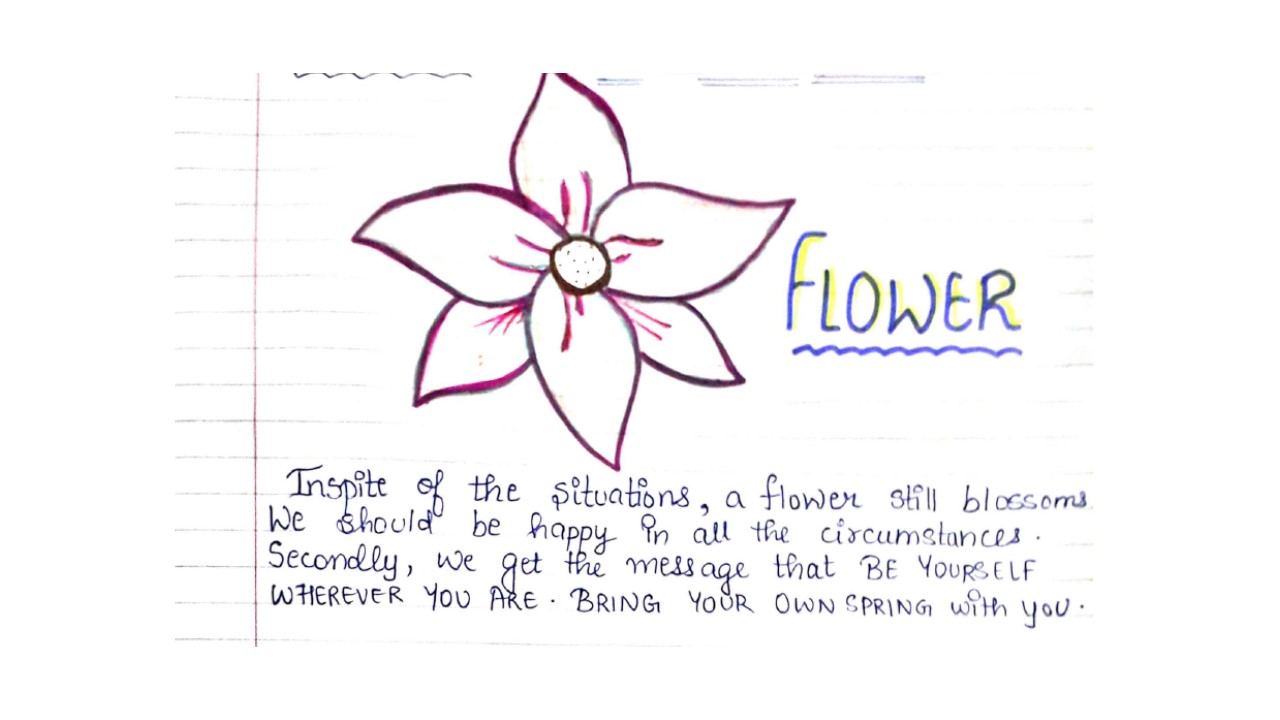 FLOWER
Inspite of the situations, a flower still blossoms.
We should be happy in all the circumstances.
Secondly, we get the message that BE YOURSELF
WHEREVER YOU ARE. BRING YOUR OWN SPRING with you.